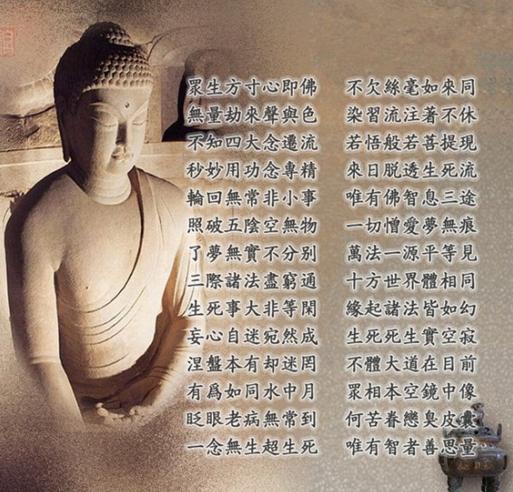 眾生方寸心即佛　不欠絲毫如來同
無量劫來聲與色　染習流注著不休
不知四大念遷流　若悟般若菩提現
秒妙用功念專精　來日脱透生死流
輪回無常非小事　唯有佛智息三途
照破五陰空無物　一切憎愛夢無痕
了夢無實不分別　萬法一源平等見
三際諸法盡窮通　十方世界體相同
生死事大非等閑　緣起諸法皆如幻
妄心自迷宛然成　生死死生實空寂
涅盤本有却迷罔　不體大道在目前
有爲如同水中月　眾相本空鏡中像
眨眼老病無常到　何苦眷戀臭皮囊
一念無生超生死　唯有智者善思量